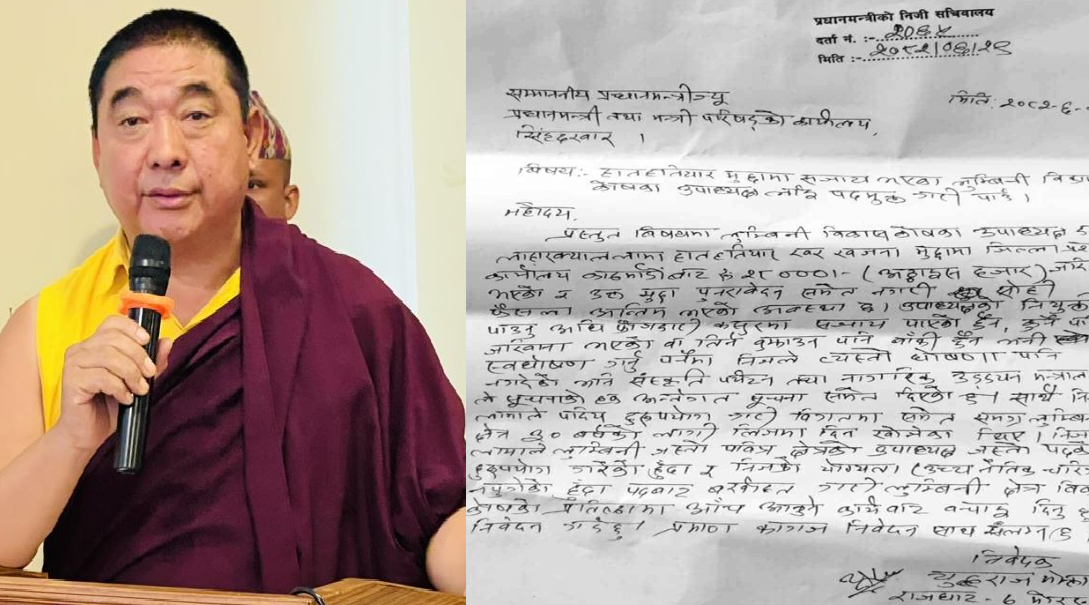 प्रधानमन्त्रीको निजी सचिवालय
दर्ता नं. :- २०६४
मिति :- २०८२।०६।२९
मिति: २०८२-६-
सम्माननीय प्रधानमन्त्रीज्यू
प्रधानमन्त्री तथा मन्त्री परिषद्को कार्यालय,
सिंहदरवार ।
विषय:- हातहतियार मुद्दामा सजाय भएका लुम्बिनी
कोषका उपाध्यक्ष लाई पदमुक्त गरी पाउँ ।
महोदय,
प्रस्तुत विषयमा लुम्बिनी विकास कोषका उपाध्यक्ष
ल्हारक्याल लामा हातहतियार खर खजना मुद्दामा जिल्ला
कार्यालय काठमाडौंबाट रु २८०००।- (अठ्ठाइस हजार)
भएको र उक्त मुद्दा पुनरावेदन समेत नगरी सोही
फैसला अन्तिम भएको अवस्था छ। उपाध्यक्षको
पाउनु अघि फौजदारी कसुरमा सजाय पाएको छैन, कुनै
जरिवाना भएको वा तिर्न बुझाउन पनि बाँकी छैन भनी
स्वघोषणा गर्नु पर्नेमा निजले त्यस्तो घोषणा पनि
नगरेको भनि संस्कृति पर्यटन तथा नागरिक उड्डयन
ले सूचनाको हक अन्तर्गत सूचना समेत दिएको छ। साथै
लामाले पदिय दुरुपयोग गरी विगतमा समेत समग्र
क्षेत्र वर्षको लागी लिजमा दिन खोजेका थिए।
लामाले लुम्बिनी जस्तो पवित्र क्षेत्रको उपाध्यक्ष जस्तो
दुरुपयोग गरेको हुँदा र निजको योग्यता (उच्च नैतिक
नपुगेको हुँदा पदबाट बर्खास्त गरी लुम्बिनी क्षेत्र
कोषको प्रतिष्ठामा आँच आउने कार्यबाट बचाइ दिनु
निवेदन गर्दछु। प्रमाण कागज निवेदन साथ संलग्न छ
निवेदक
राज
राजघाट - ६